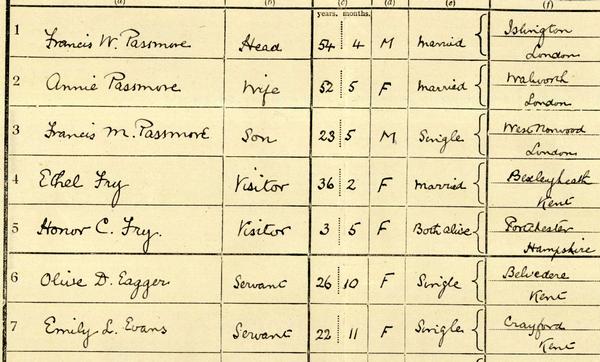 (a) (b) (c) (d) (e) (f)
years. months.
1 Francis W. Passmore Head 54 4 M Married Islington
London
2 Annie Passmore Wife 52 5 F Married Walworth
London
3 Francis M. Passmore Son 23 5 M Single West Norwood
London
4 Ethel Fry Visitor 36 2 F Married Bexleyheath
Kent
5 Honor C. Fry. Visitor 3 5 F Both alive Portchester
Hampshire
6 Olive D. Eagger Servant 26 10 F Single Belvedere
Kent
7 Emily L. Evans Servant 22 11 F Single Crayford
Kent